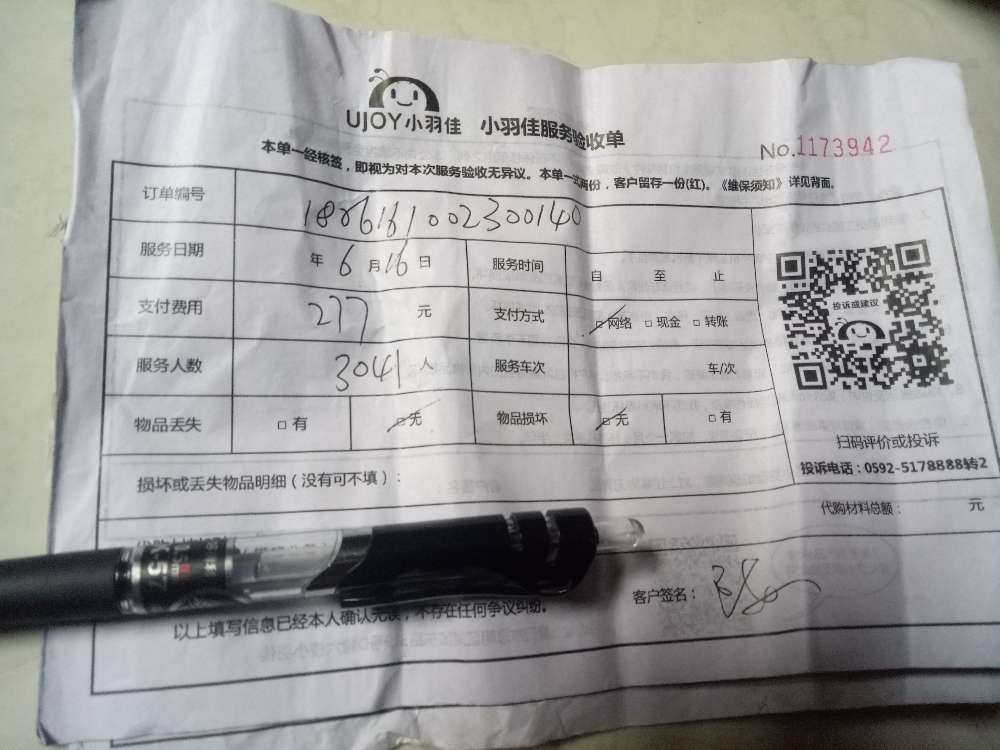 UJOY小羽佳 小羽佳服务验收单
No.1173942
本单一经核签，即视为对本次服务验收无异议。本单一式两份，客户留存一份(红)。《维保须知》详见背面。
订单编号 1806161002300140
服务日期 年 6 月 16 日 服务时间 自 至 止
支付费用 277 元 支付方式 □网络 □现金 □转账
服务人数 3041 人 服务车次 车/次
物品丢失 □有 □无 物品损坏 □无 □有
投诉或建议
扫码评价或投诉
投诉电话：0592-5178888转2
损坏或丢失物品明细（没有可不填）：
代购材料总额： 元
客户签名：
以上填写信息已经本人确认无误，不存在任何争议纠纷。